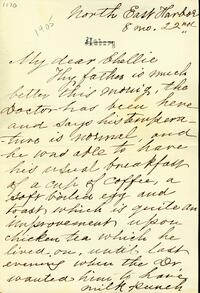 1170
North East Harbor
8 mo. 22nd
1905
My dear Chellie
Thy father is much
better this morning, the
Doctor has been here
and says his tempera-
ture is normal, and
he was able to have
his usual breakfast
of a cup of coffee, a
soft boiled egg and
toast which is quite an
improvement upon
chicken tea which he
lived on, until last
evening when the Dr
wanted him to have
milk punch